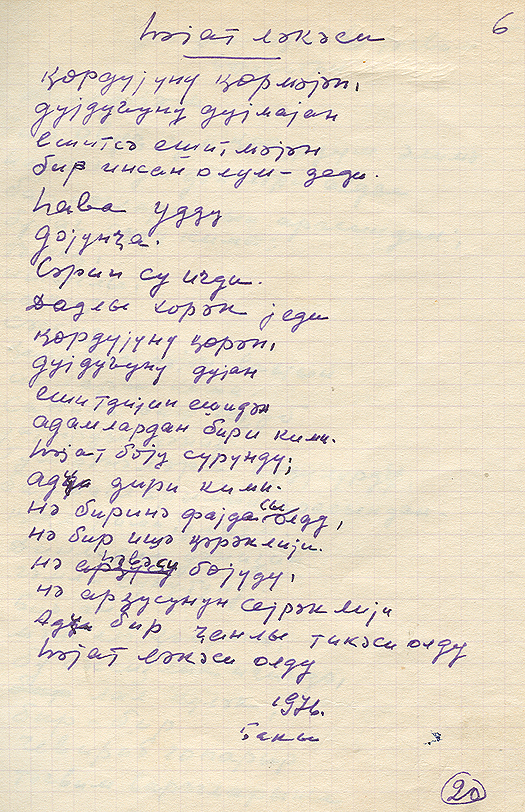 6
Һәјат ләкәси
Ҝөрдүјүнү ҝөрмәјән,
дујдуғуну дујмајан
Ешитсә ешитмәјән
бир инсан олум – деди.
Һава удду
дојунҹа.
Сәрин су ичди.
Дадлы хөрәк једи
Ҝөрдүјүнү ҝөрән,
дујдуғуну дујан
ешитдијин ешидән
адамлардан бири кими.
Һәјат боју сүрүндү;
ады дири кими.
Нә биринә фајдасы олду,
нә бир ишә ҝәрәклији.
нә һәвәси бөјүдү,
нә арзусунун сејрәклији
Ады бир ҹанлы тикәси олду
Һәјат ләкәси олду
1976.
Бакы
20